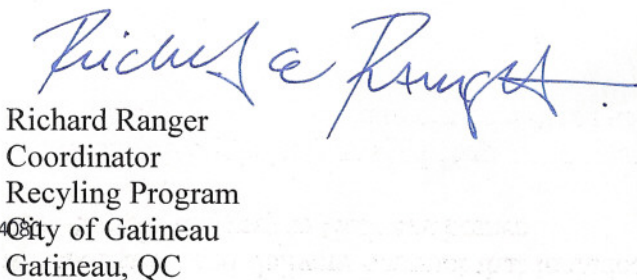 Richard Ranger
Coordinator
Recyling Program
City of Gatineau
Gatineau, QC